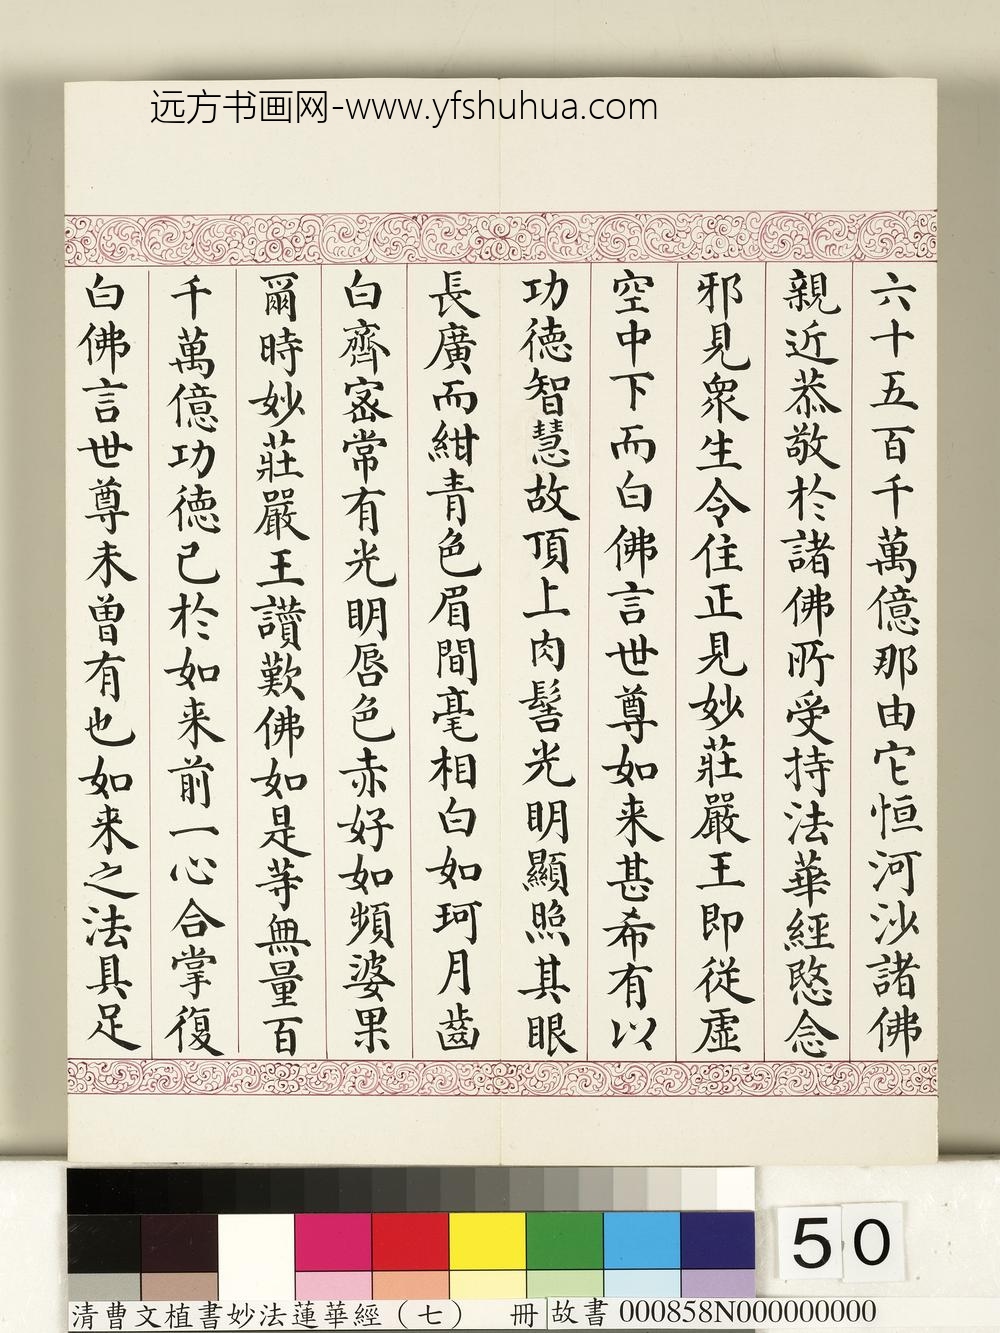 远方书画网-www.yfshuhua.com
六十五百千萬億那由它恒河沙諸佛
親近恭敬於諸佛所受持法華經愍念
邪見衆生令住正見妙莊嚴王即從虛
空中下而白佛言世尊如来甚希有以
功德智慧故頂上肉髻光明顯照其眼
長廣而紺青色眉間毫相白如珂月齒
白齊密常有光明唇色赤好如頻婆果
爾時妙莊嚴王讚歎佛如是等無量百
千萬億功德已於如来前一心合掌復
白佛言世尊未曾有也如来之法具足
50
清曹文植書妙法蓮華經（七） 冊 故書 000858N000000000